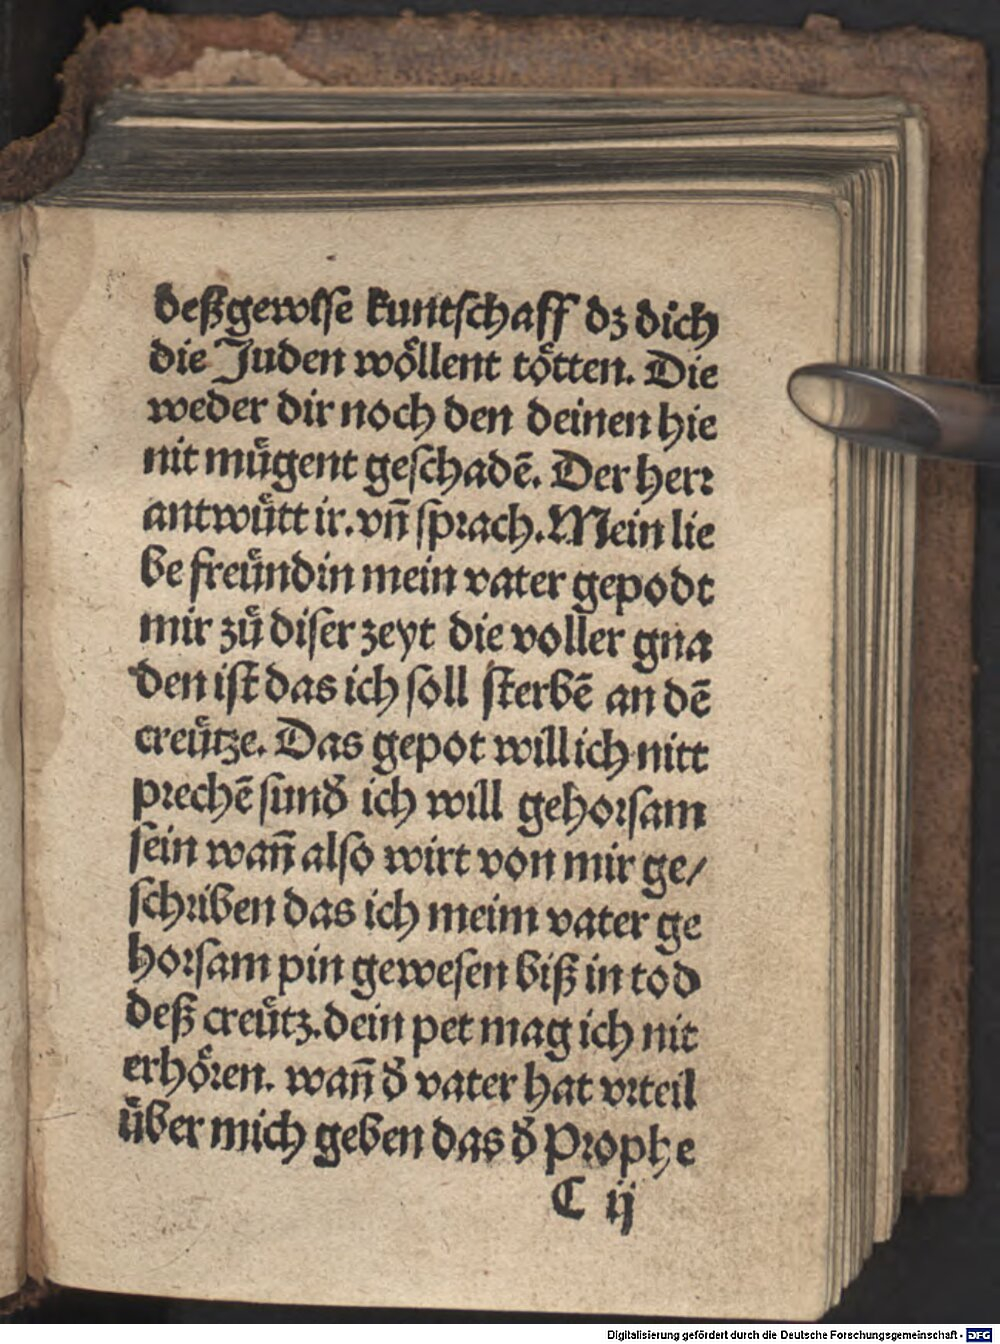 deßgewisse kuntschaff dz dich
die Juden woͤllent toͤtten. Die
weder dir noch den deinen hie
nit muͤgent geschadē. Der herꝛ
antwuͤtt ir. vn̄ spꝛach. Mein lie
be freuͤndin mein vater gepodt
mir zuͤ diser zeyt die voller gna
den ist das ich soll sterbē an dē
creuͤtze. Das gepot will ich nitt
pꝛechē sund̕ ich will gehoꝛsam
sein wan̄ also wirt von mir ge/
schꝛiben das ich meim vater ge
hoꝛsam pin gewesen biß in tod
deß creuͤtz. dein pet mag ich nit
erhoͤꝛen. wan̄ d̕ vater hat vꝛteil
uͤber mich geben das d̕ Pꝛophe
C ij
Digitalisierung gefördert durch die Deutsche Forschungsgemeinschaft - DFG